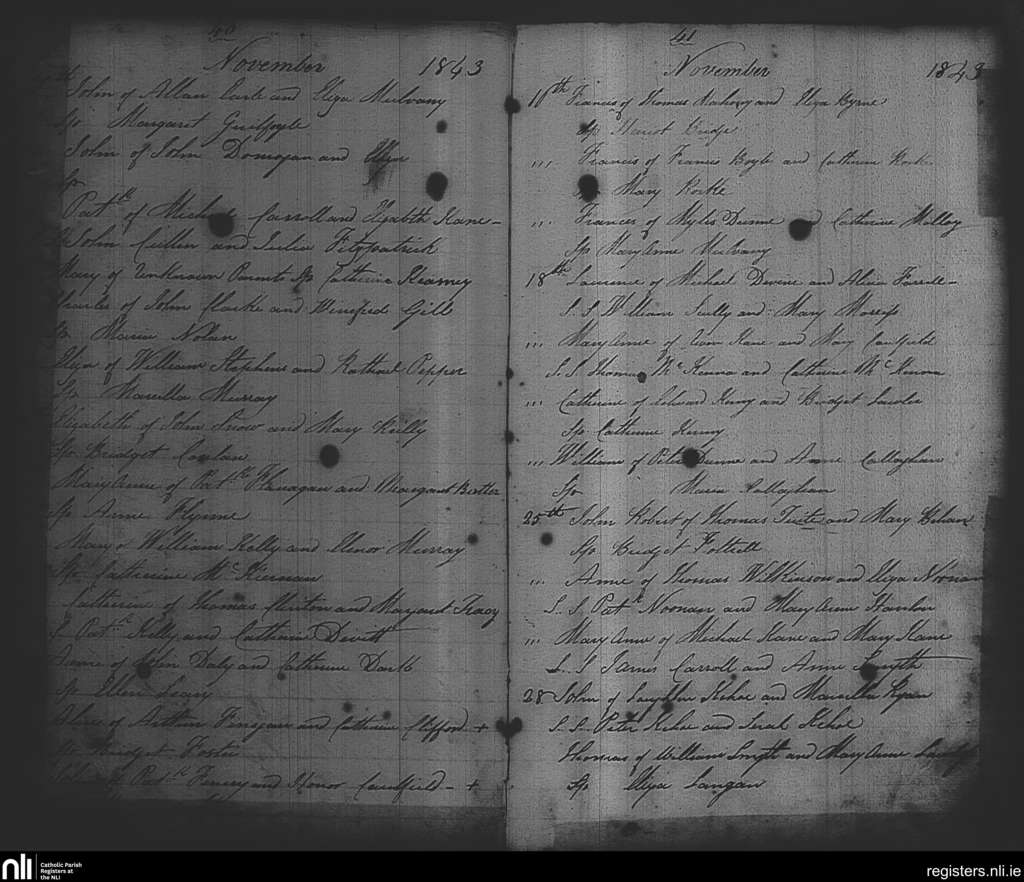 40
November 1843
John of Allan Carb and Eliza Mulvany
Sp Margaret Guilfoyle
John of John Donogan and Ellen
Sp
Patk of Michael Carroll and Elizabeth Kane -
John Cullen and Julia Fitzpatrick
Mary of Unknown Parents Sp Catherine Kearney
Charles of John Clarke and Winefred Gill
Sp Maria Nolan
Eliza of William Stephens and Rathael Pepper
Sp Marcella Murray
Elizabeth of John Snow and Mary Reilly
Sp Bridget Conlan
Mary Anne of Patk Flanagan and Margaret Butler
Sp Anne Flynne
Mary of William Kelly and Elenor Murray
Sp Catherine Mc Kiernan
Catherine of Thomas and Margaret Tracy
S Patk Kelly and Catherine Devitt
Anne of John Daly and Catherine Dark
Sp Ellen Leary
of Arthur Finegan and Catherine Clifford - +
Sp Bridget Foster
of Patk Finery and Honor Caulfield - +
41
November 1843
11th Francis of Thomas and Eliza Byrne
Sp Hariot Bridge
,,, Francis of Francis Boyle and Catherine Rorke
Sp Mary Rorke
,,, Frances of Myles Dunne and Catherine Molloy
Sp Mary Anne Mulvany
18th Laurence of Michael Devine and Alicia Farrell -
S. S William Scully and Mary Morris
,,, Mary Anne of Kane and Mary Caulfield
S. S Thomas Mc Kenna and Catherine Mc Kenna
,,, Catherine of Edward Kenny and Bridget Lawler
Sp Catherine Kenny
,,, William of Peter Dunne and Anne Callaghan
Sp Maria Callaghan
25th John Robert of Thomas Tuite and Mary
Sp Bridget Fottrell
,,, Anne of Thomas Wilkinson and Eliza Noonan
S. S Patk Noonan and Mary Anne Hanlon
,,, Mary Anne of Michael Kane and Mary Kane
S. S James Carroll and Anne Smyth
28 John of Kehoe and Marcella Ryan
S. S. Peter Kehoe and Sarah Kehoe
Thomas of William Smyth and Mary Anne
Sp Eliza Langan
nli
Catholic Parish
Registers at
the NLI
registers.nli.ie